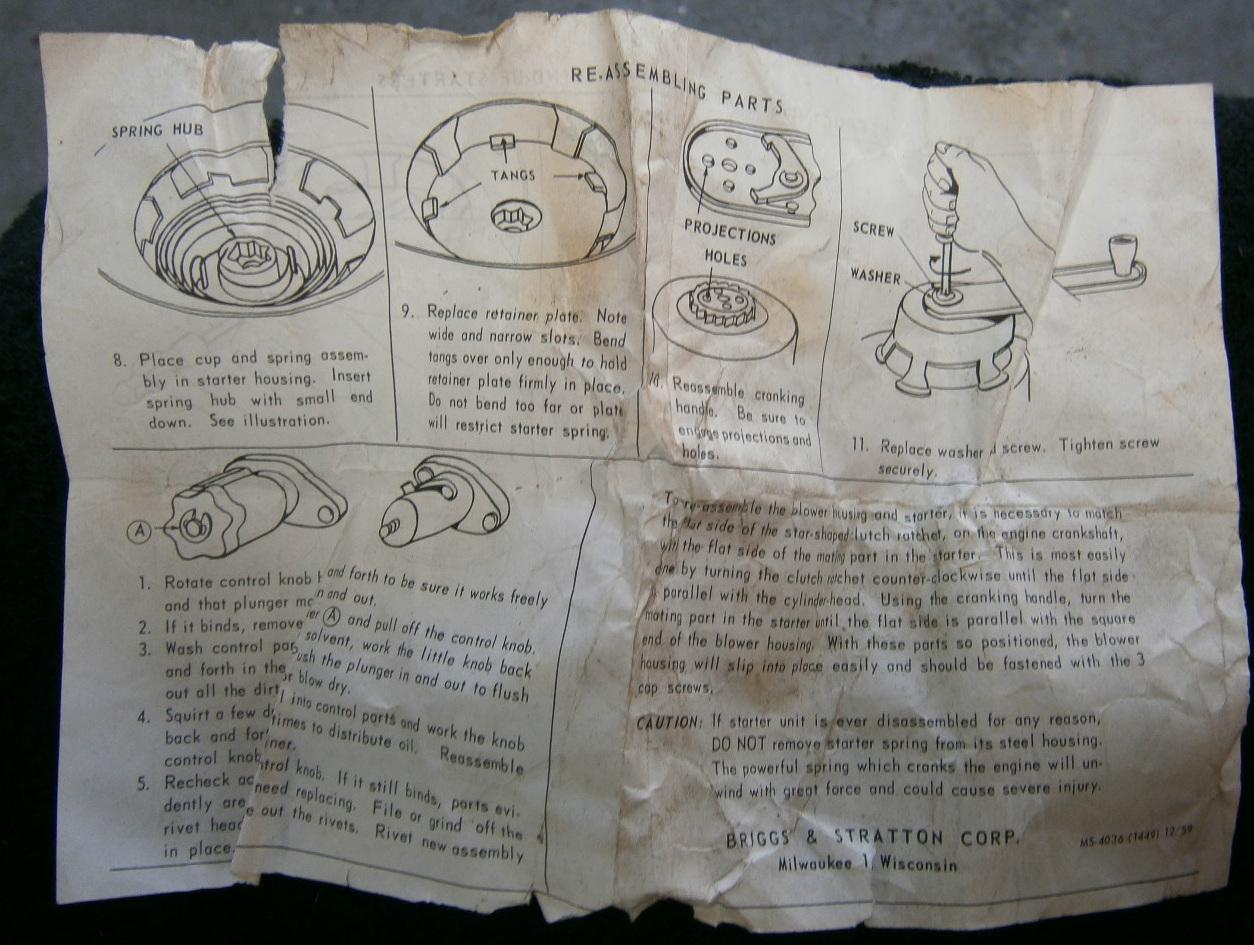 RE-ASSEMBLING PARTS
SPRING HUB
8. Place cup and spring assem-
bly in starter housing. Insert
spring hub with small end
down. See illustration.
TANGS
9. Replace retainer plate. Note
wide and narrow slots. Bend
tangs over only enough to hold
retainer plate firmly in place.
Do not bend too far or plate
will restrict starter spring.
PROJECTIONS
HOLES
Reassemble cranking
handle. Be sure to
engage projections and
holes.
SCREW
WASHER
11. Replace washer d screw. Tighten screw
securely.
A
1. Rotate control knob and forth to be sure it works freely
and that plunger n and out.
2. If it binds, remove er A and pull off the control knob.
3. Wash control solvent, work the little knob back
and forth in the ush the plunger in and out to flush
out all the dirt or blow dry.
4. Squirt a few into control parts and work the knob
back and for times to distribute oil. Reassemble
control knob iner.
5. Recheck ac ntrol knob. If it still binds, parts evi-
dently are need replacing. File or grind off the
rivet head e out the rivets. Rivet new assembly
in place.
To re-assemble the blower housing and starter, it is necessary to match
the flat side of the star-shaped clutch ratchet, on the engine crankshaft,
with the flat side of the mating part in the starter. This is most easily
done by turning the clutch ratchet counter-clockwise until the flat side
parallel with the cylinder-head. Using the cranking handle, turn the
mating part in the starter until the flat side is parallel with the square
end of the blower housing. With these parts so positioned, the blower
housing will slip into place easily and should be fastened with the 3
cap screws.
CAUTION: If starter unit is ever disassembled for any reason,
DO NOT remove starter spring from its steel housing.
The powerful spring which cranks the engine will un-
wind with great force and could cause severe injury.
BRIGGS & STRATTON CORP.
Milwaukee 1, Wisconsin
MS-4036 (1449) 12/59